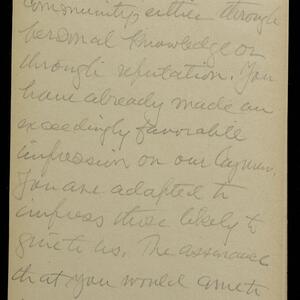 community, either through
personal knowledge or
through reputation. You
have already made an
exceedingly favorable
impression on our laymen.
You are adapted to
impress those likely to
give to us. The assurance
that you would